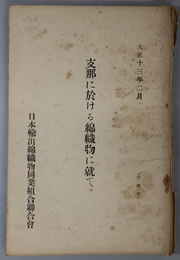 大正十三年二月
支那に於ける綿織物に就て
日本輸出綿織物同業組合聯合會